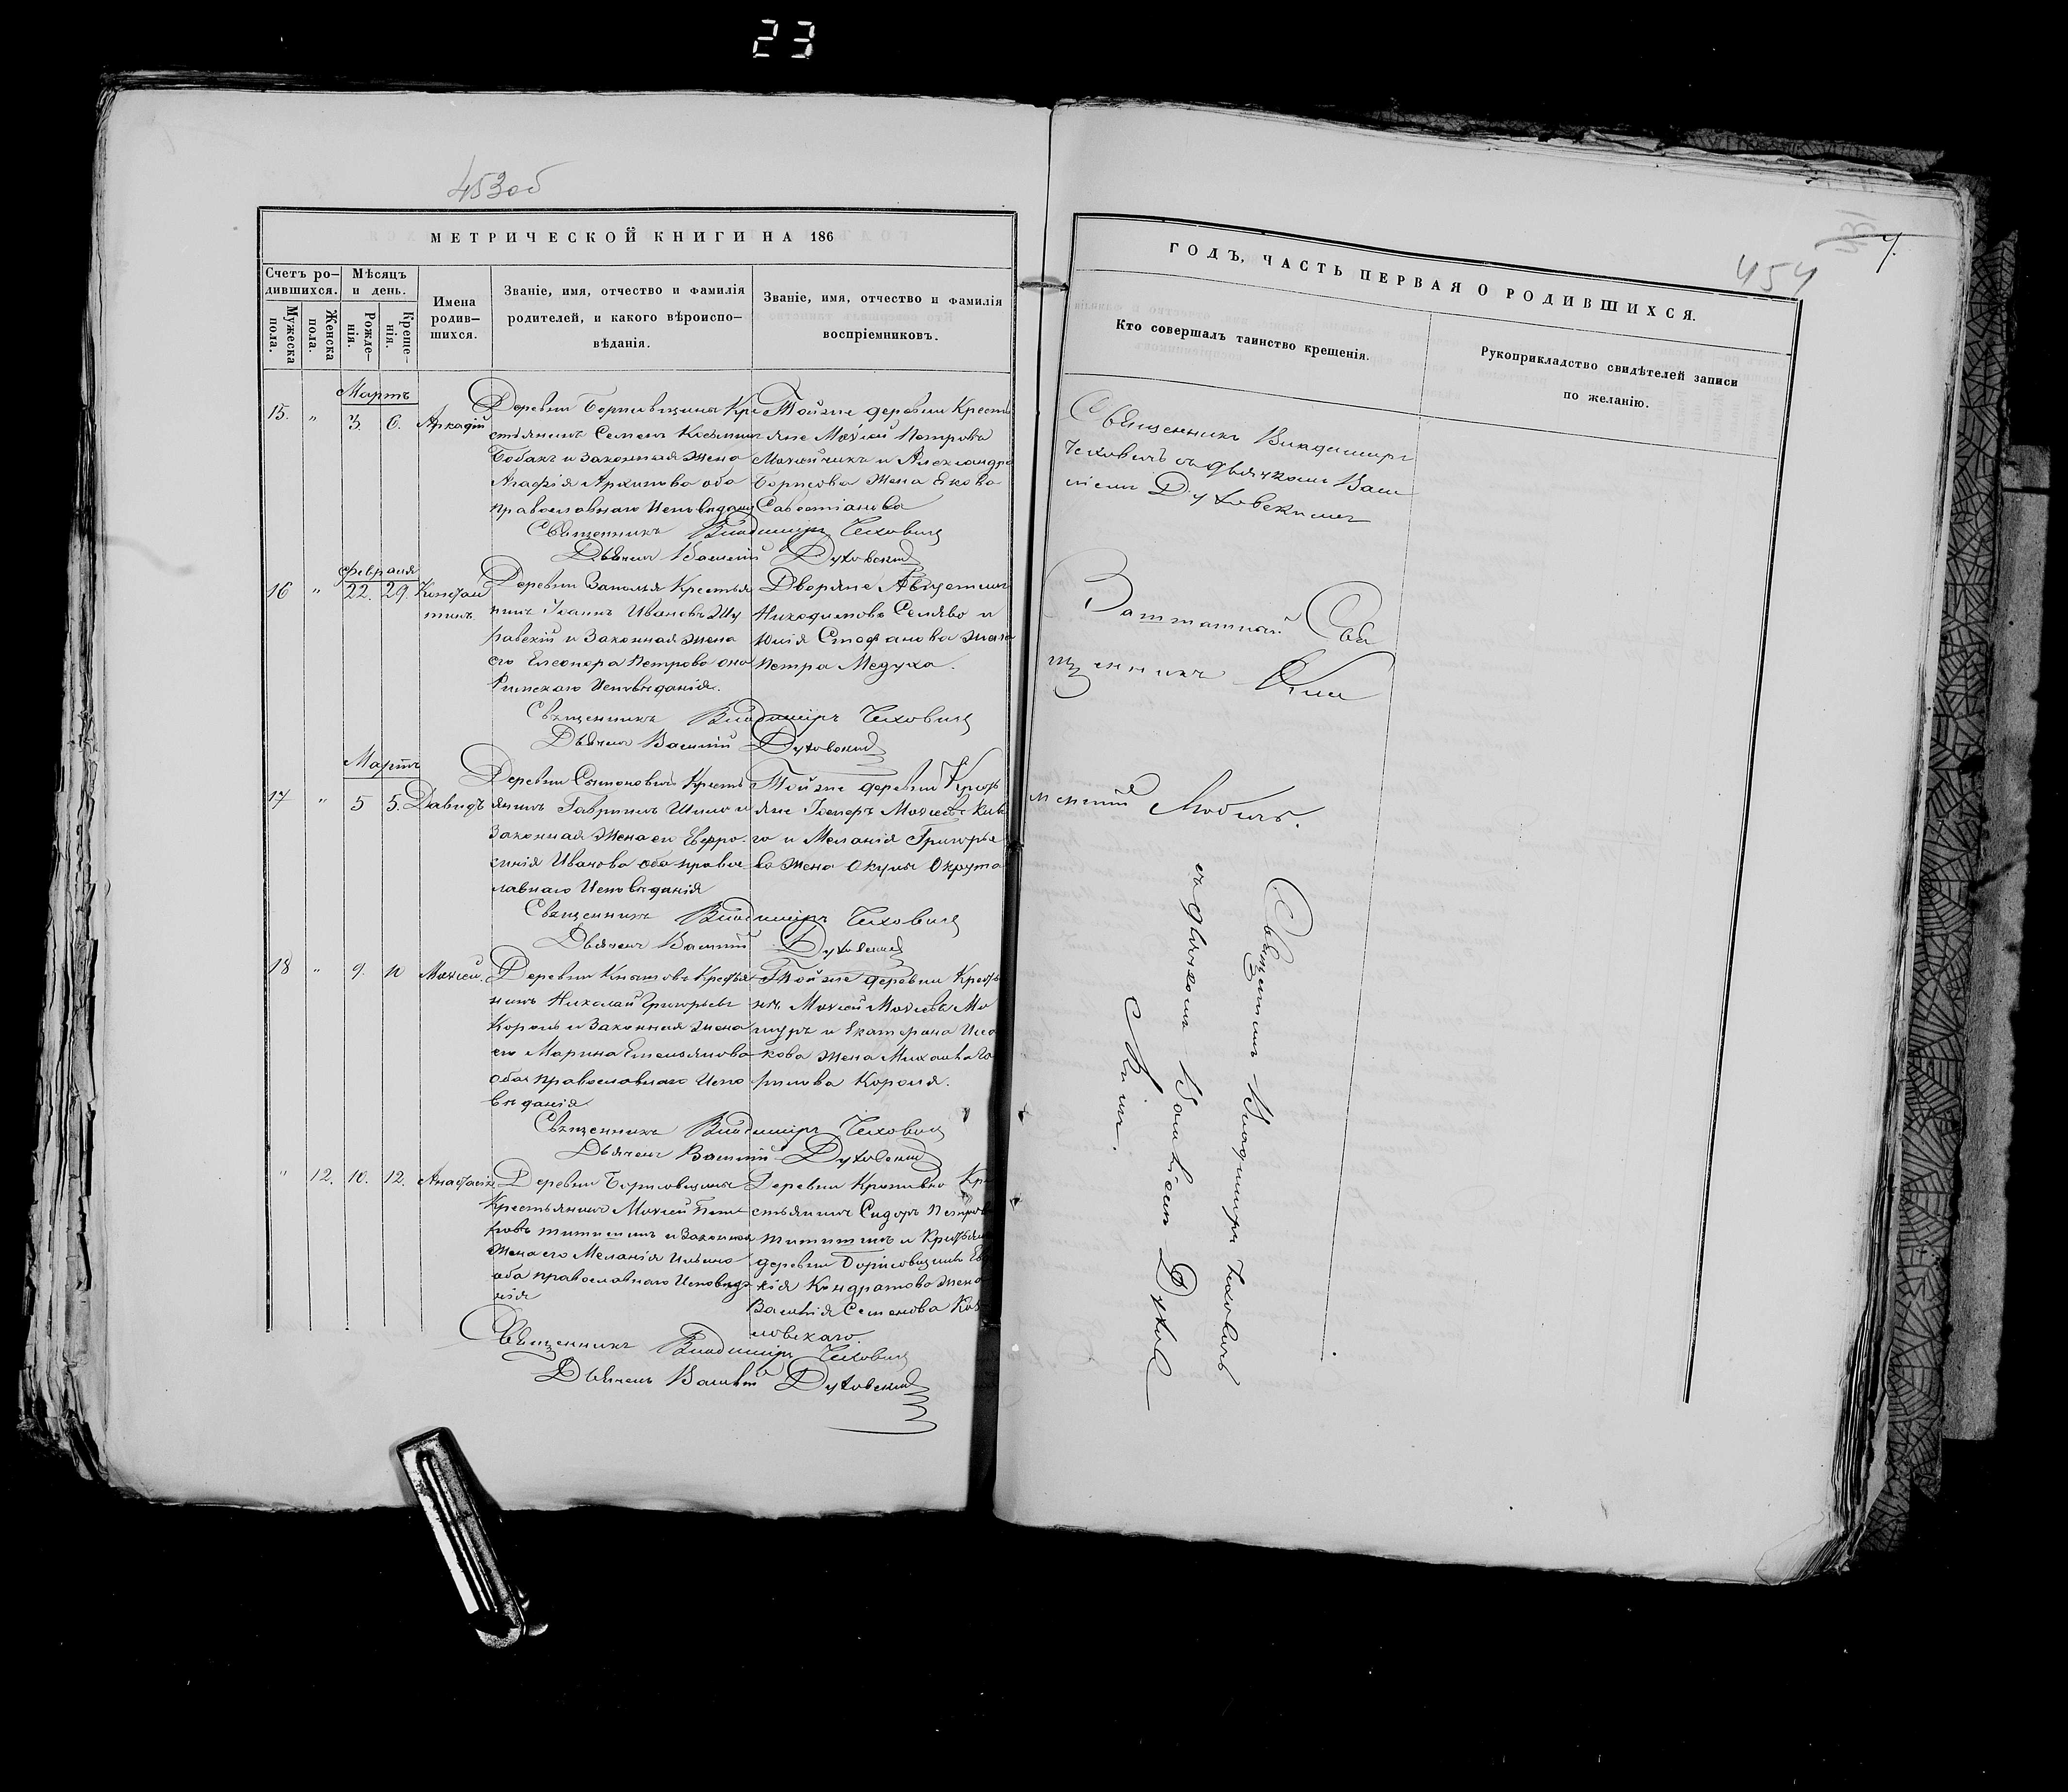 23
453об
МЕТРИЧЕСКОЙ КНИГИ НА 186
Счетъ ро-
дившихся.
Мѣсяцъ
и день.
Мужеска
пола.
Женска
пола.
Рожде-
нія.
Креще-
нія.
Имена
родив-
шихся.
Званіе, имя, отчество и фамилія
родителей, и какого вѣроиспо-
вѣданія.
Званіе, имя, отчество и фамилія
воспріемниковъ.
Мартъ
15. " 3. 6. Аркадій
Деревни Борисовщины Кре
стьянинъ Семенъ
Бобакъ и Законная Жена
Агафія Архипова оба
православнаго Исповѣданія
Тойже деревни Кресть
яне Моѵсей Петровъ
и Александра
Борисова Жена Якова
Савостіанова
Священникъ Владиміръ Чеховичъ
Дьячекъ Василій Духовскій
Февраля
16 " 22. 29. Констан
тинъ
Деревни Заполья Крестья
нинъ Іоаннъ Ивановъ Жу
равскій и Законная Жена
его Елеонора Петрова она
Римскаго Исповѣданія.
Дворяне Августинъ
Никодимовъ Селяво и
Юлія Стефанова жена
Петра Медуха.
Священникъ Владиміръ Чеховичъ
Дьячекъ Василій Духовскій
Мартъ
17 " 5 5. Давидъ
Деревни Симоновичъ Кресть
янинъ Гавріилъ Шило и
Законная Жена его Евфро-
синія Иванова оба право
славнаго Исповѣданія
Тойже деревни Кресть
яне
го и Меланія Григорье
ва Жена
Священникъ Владиміръ Чеховичъ
Дьячекъ Василій Духовскій
18 " 9. 11 Моѵсей.
Деревни Крестья
нинъ Николай Григорьевъ
Король и Законная жена
его Марина Емельянова
оба православнаго Испо
вѣданія
Тойже деревни Кресть
Моѵсей Моѵсеевъ Мо
и Екатерина Иса
кова Жена Михаила Га
рилова Короля.
Священникъ Владиміръ Чеховичъ
Дьячекъ Василій Духовскій
" 12. 10. 12. Анастасія
Деревни Борисовщины
Крестьянинъ Моѵсей Пет
ровъ и Законная
Жена его Меланія Ильина
оба православнаго Исповѣда
нія
Деревни Кропивно Кре
стьянинъ Сидоръ Петровъ
и Крестьянка
деревни Борисовщины Ев
кія Кондратова жена
Василія Семенова Коз
ловскаго.
Священникъ Владиміръ Чеховичъ
Дьячекъ Василій Духовскій
454
7.
ГОДЪ, ЧАСТЬ ПЕРВАЯ О РОДИВШИХСЯ.
Кто совершалъ таинство крещенія.
Рукоприкладство свидѣтелей записи
по желанію.
Священникъ Владиміръ
Чеховичъ съ дьячкомъ Васи
ліемъ Духовскимъ
Заштатный Свя
щенникъ Кли
ментій
Священникъ Владиміръ Чеховичъ
съ дьячкомъ Василіемъ Духов
скимъ.